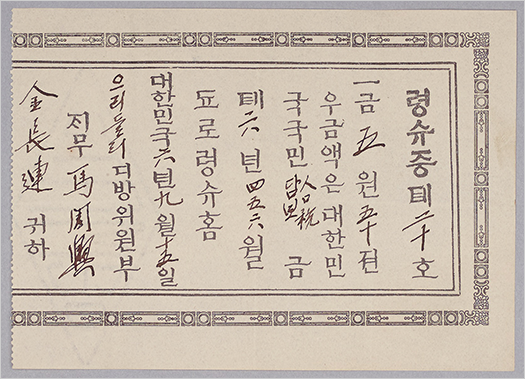 령슈증 뎨 二十 호
一금 五 원 五十 젼
우금액은 대한민
국국민 人口稅 금
뎨 六 년 四五六 월
됴로 령슈홈
대한민국 六 년 九 월 十五 일
으리들리 디방위원부
ᄌᆡ무 馬周興
金長連 귀하